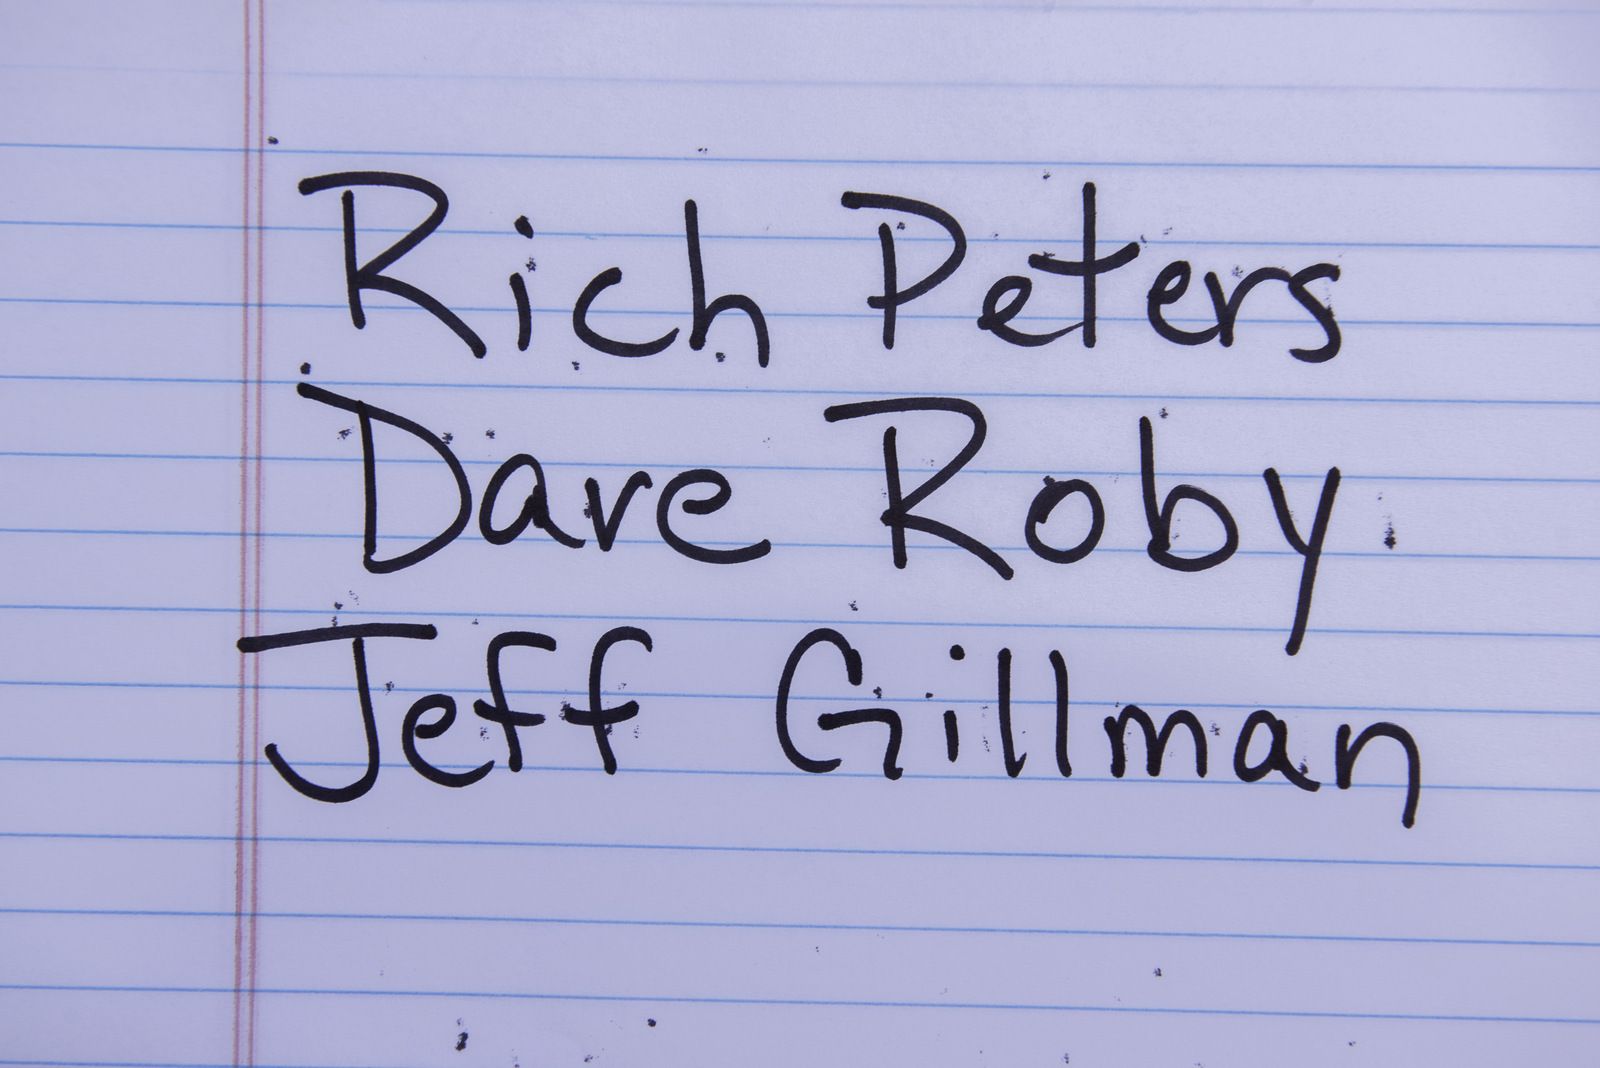 Rich Peters
Dave Roby
Jeff Gillman